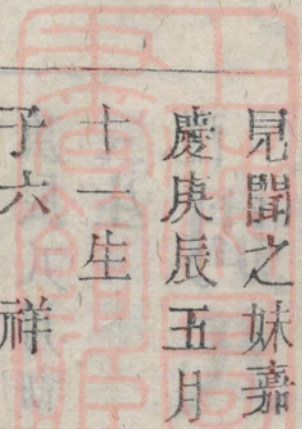 見聞之妹嘉
慶庚辰五月
十一生
子六　祥